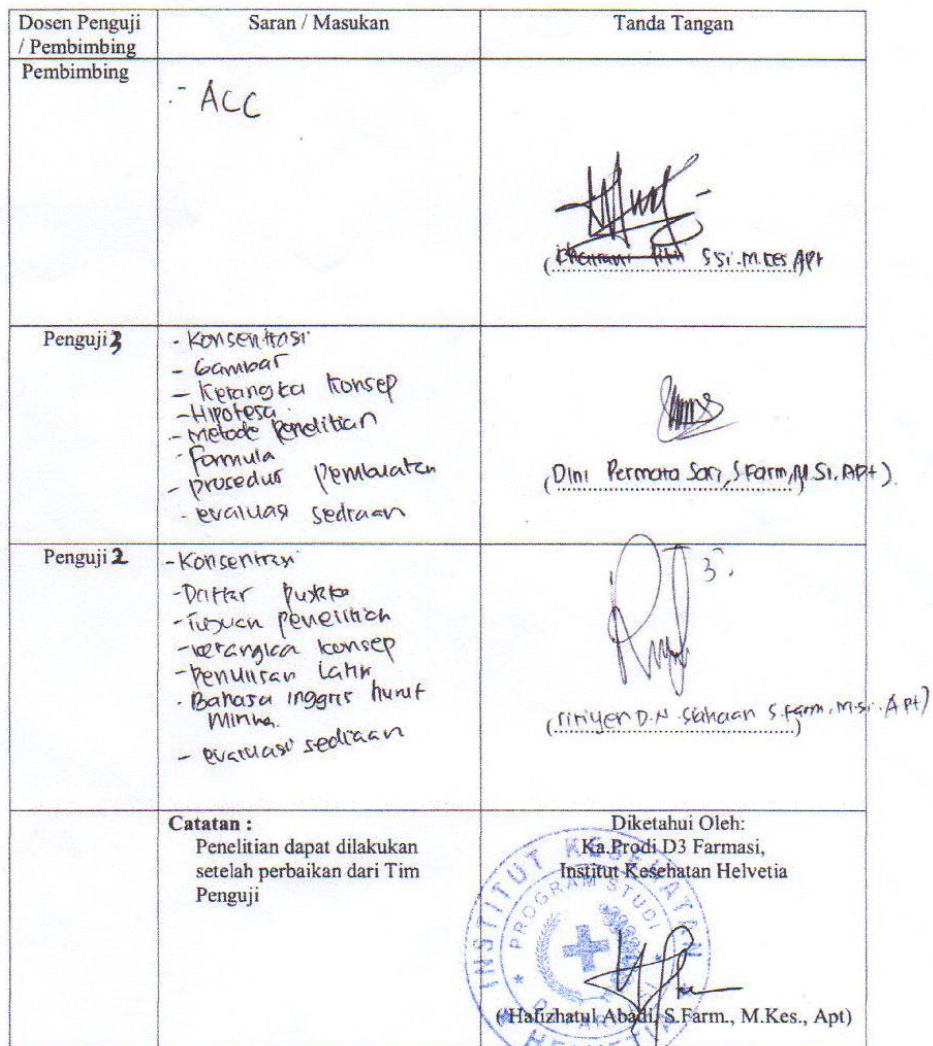 Dosen Penguji / Pembimbing
Saran / Masukan
Tanda Tangan
Pembimbing
- ACC
S.Si. M.Kes Apt
Penguji 3
- Konsentrasi
- Gambar
- Kerangka Konsep
- Hipotesa
- metode Penelitian
- formula
- prosedur pembuatan
- evaluasi sediaan
(Dini Permata Sari, S.Farm, M.Si. Apt)
Penguji 2
- Konsentrasi
- Daftar Pustaka
- Tujuan penelitian
- kerangka konsep
- Penulisan Latin
- Bahasa inggris huruf
- evaluasi sediaan
(D.N. Siahaan S.Farm. M.Si. Apt)
Catatan :
Penelitian dapat dilakukan
setelah perbaikan dari Tim
Penguji
Diketahui Oleh:
Ka.Prodi D3 Farmasi,
Institut Kesehatan Helvetia
INSTITUT KESEHATAN
PROGRAM STUDI
HELVETIA
(Hafizhatul Abadi, S.Farm., M.Kes., Apt)